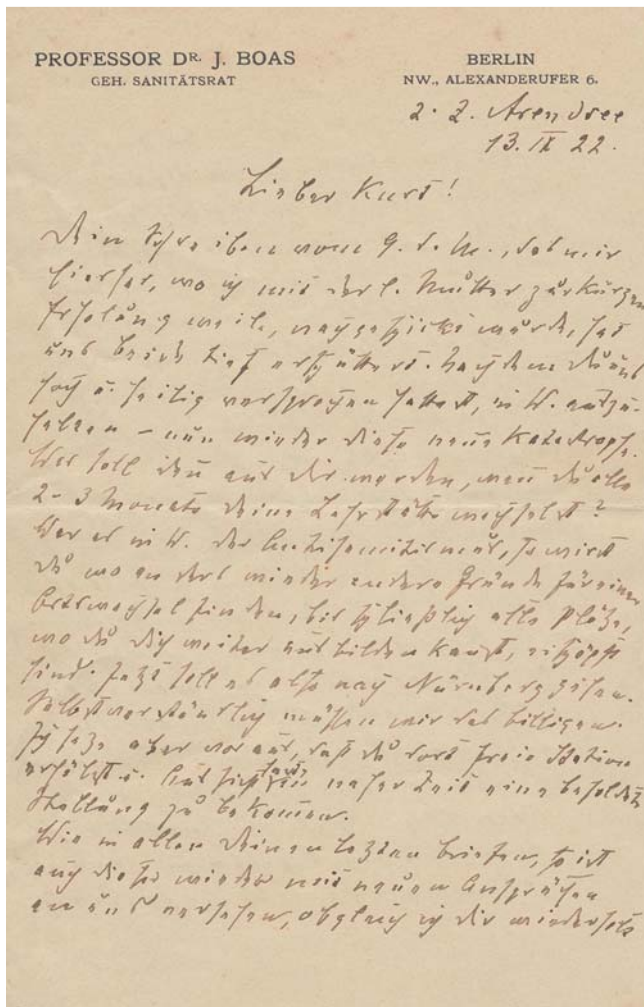 PROFESSOR DR. J. BOAS
GEH. SANITÄTSRAT
BERLIN
NW., ALEXANDERUFER 6.
z. Z. Arendsee
13. IX 22.
Lieber Kurt!
Dein Schreiben vom 9. d. M., das mir
hierher, wo ich mit der l. Mutter zur kurzen
Erholung weile, nachgeschickt wurde, hat
uns beide tief erschüttert. Nachdem du uns
hoch u. heilig versprochen hattest, in W. auszu-
halten – nun wieder diese neue Katastrophe.
Was soll denn aus dir werden, wenn du alle
2-3 Monate deine Lehrstätte wechselst?
War es in W. der Antisemitismus, so wirst
du wo anders wieder andere Gründe für einen
Ortswechsel finden, bis schließlich alle Plätze,
wo du dich weiter ausbilden kannst, erschöpft
sind. Jetzt soll es also nach Nürnberg gehen.
Selbstverständlich müssen wir das billigen.
Ich setze aber voraus, daß du dort freie Station
erhältst u. Aussicht hast in naher Zeit eine besoldete
Stellung zu bekommen.
Wie in allen deinen letzten Briefen, so ist
auch dieser wieder mit neuen Ansprüchen
an uns versehen, obgleich ich dir wiederholt